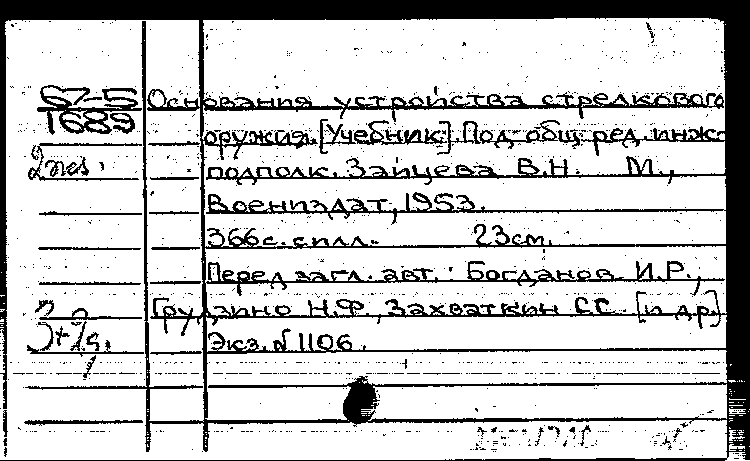 67-5
1689
Основания устройства стрелкового
оружия. [Учебник]. Под общ. ред. инж.-
подполк. Зайцева В.Н. М.,
Воениздат, 1953.
366с. с илл. 23см.
Перед загл. авт.: Богданов И.Р.,
Грудзино Н.Ф., Захваткин С.С. [и др.]
Экз. № 1106.